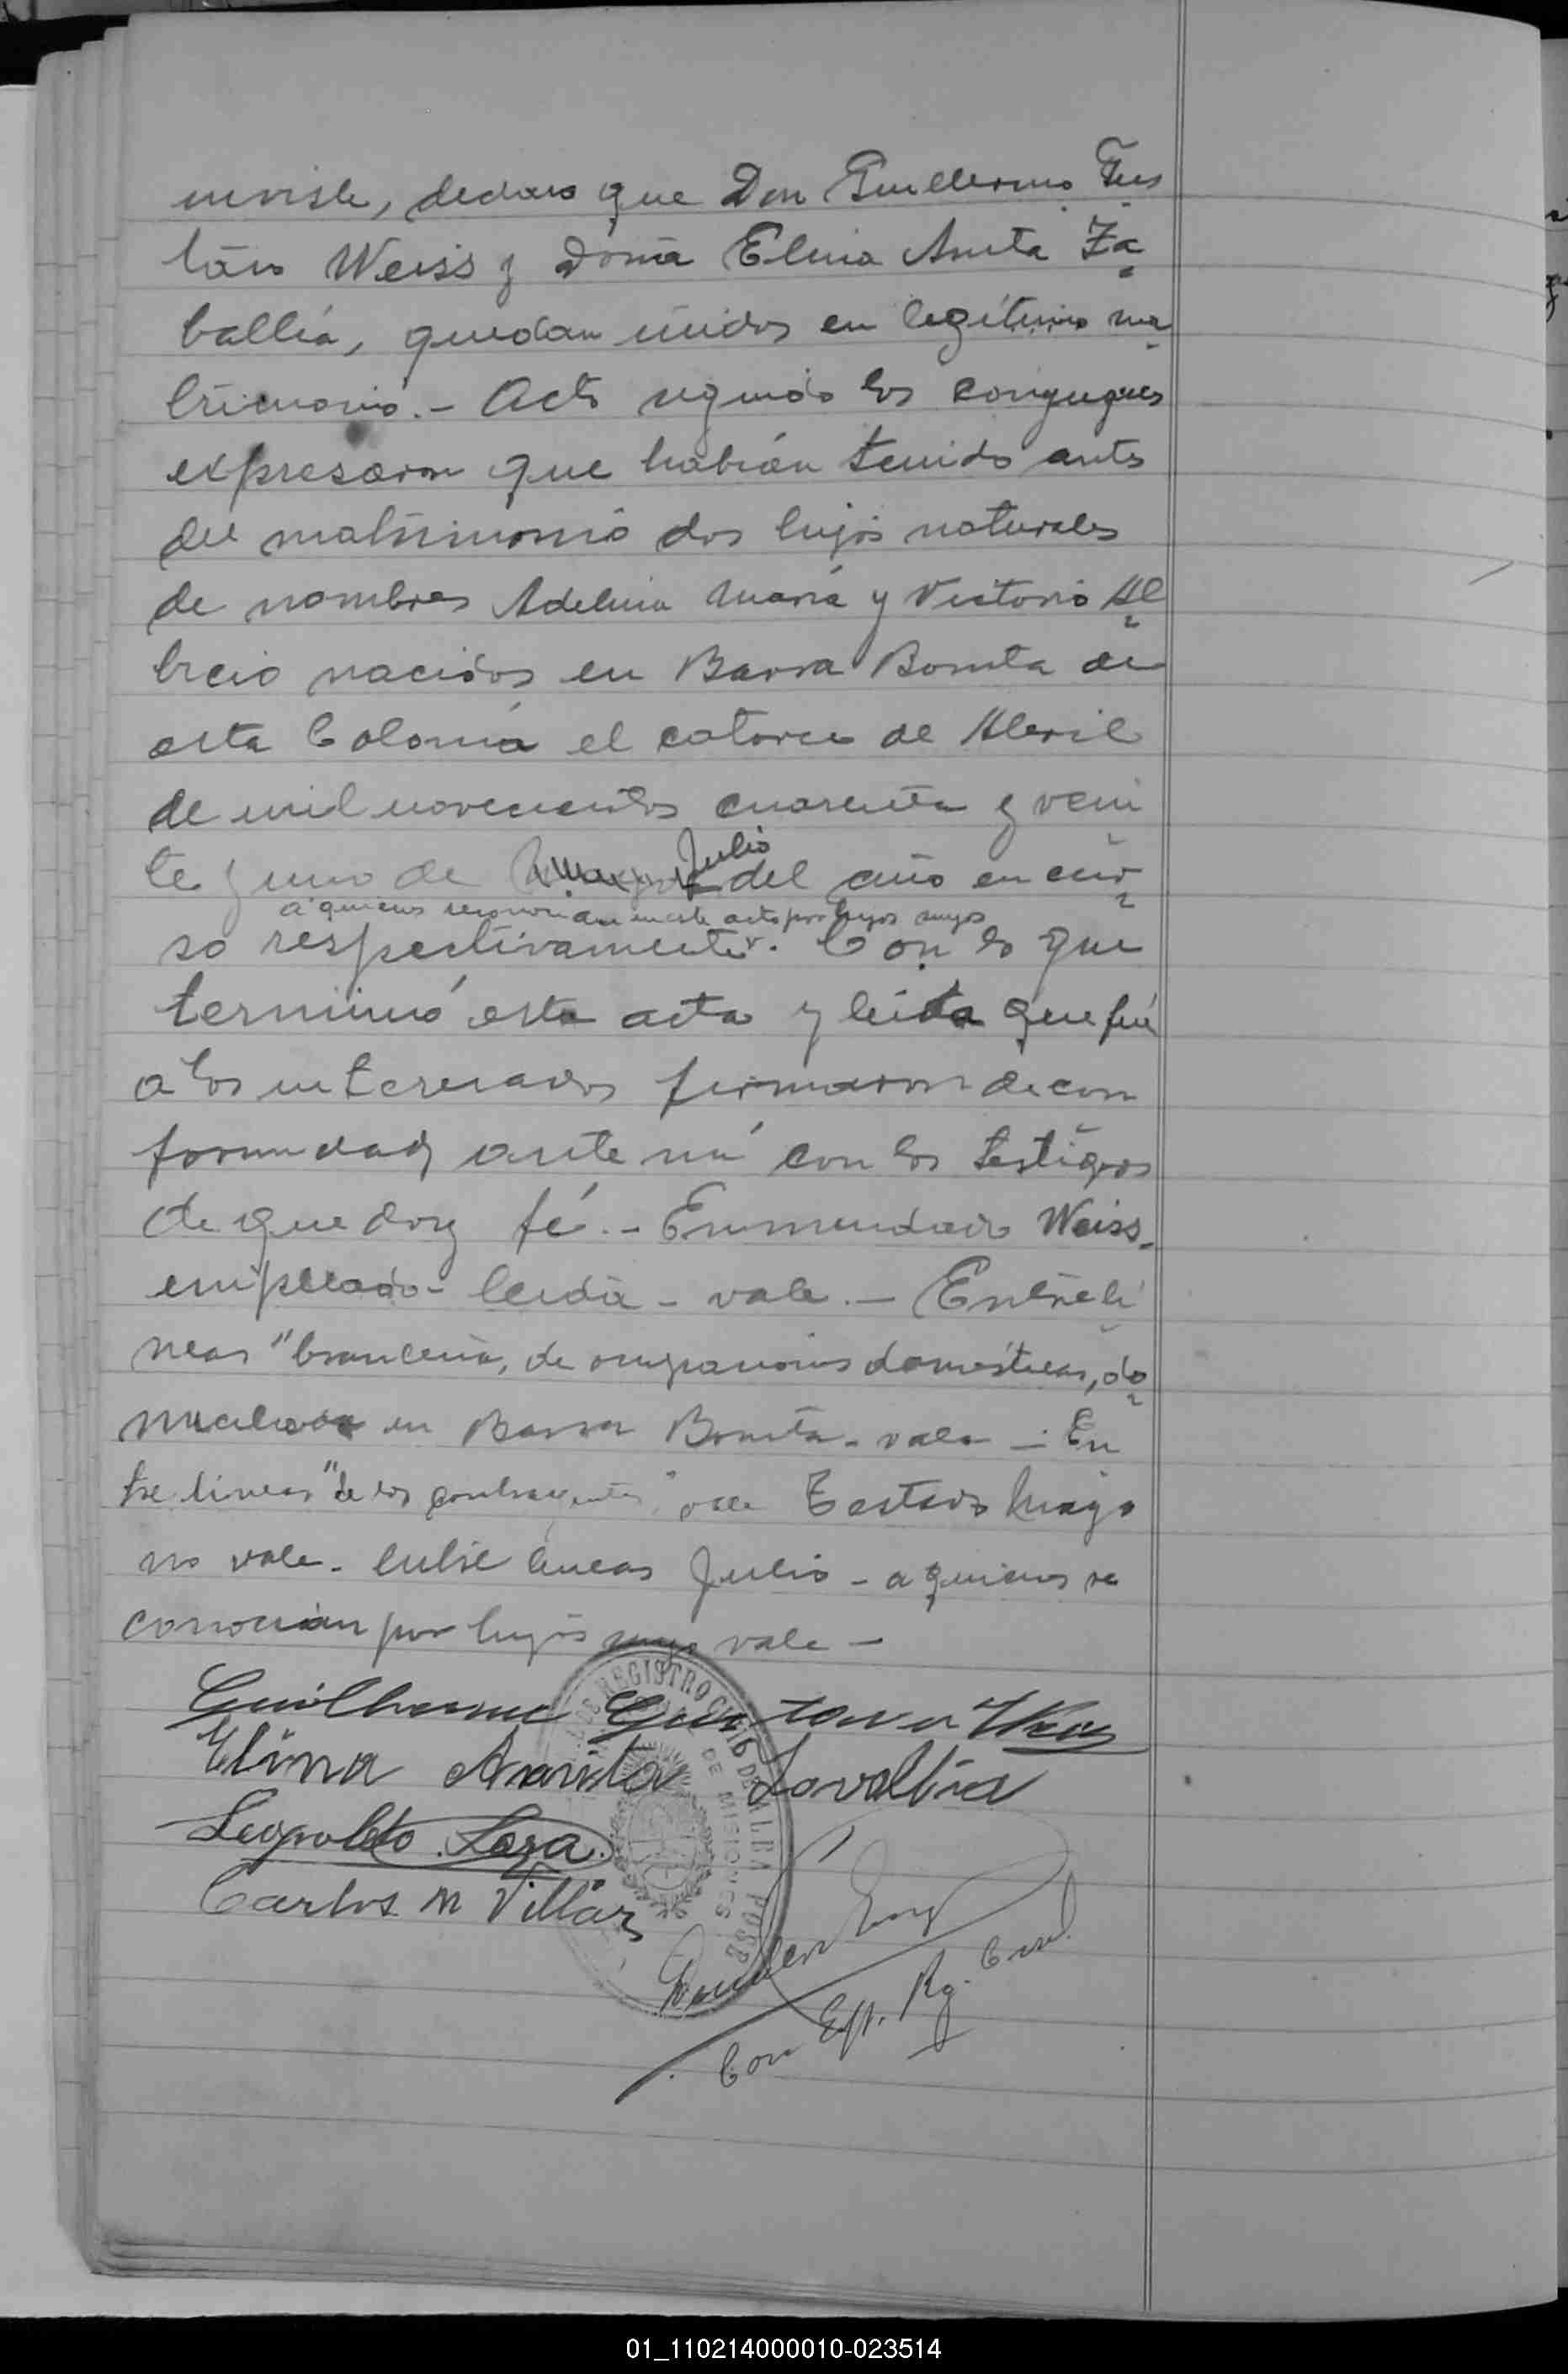 inviste, declaro que Don Guillermo Gus
tavo Weiss y Doña Elina Anita Za
ballia, quedan unidos en legítimo ma
trimonio.- Acto seguido los conyugues
expresaron que habían tenido antes
del matrimonio dos hijos naturales
de nombres Adelina María y Victorio Al
breio nacidos en Barra Bonita de
esta Colonia el catorce de Abril
de mil novecientos cuarenta y vein
te y uno de Julio del año en cur
a quienes reconocian en este acto por hijos suyos
so respectivamente. Con lo que
terminó esta acta y leida que fué
a los interesados firmaron de con
formidad ante mí con los testigos
de que doy fé.- Enmendado Weiss-
empleado- leida- vale.- Entreli
neas "brasileña, de ocupaciones domésticas, do
miciliada en Barra Bonita- vale- En
tre lineas "de los contrayentes" vale Testado Mayo
no vale- entre lineas Julio- a quienes re
conocian por hijos suyos vale-
Guilherme Gustavo Weiss
Elina Anita Zavallia
Leopoldo Loza
Carlos M Villar
REGISTRO CIVIL DE
DE MISIONES
Enc Reg. Civil
01_110214000010-023514